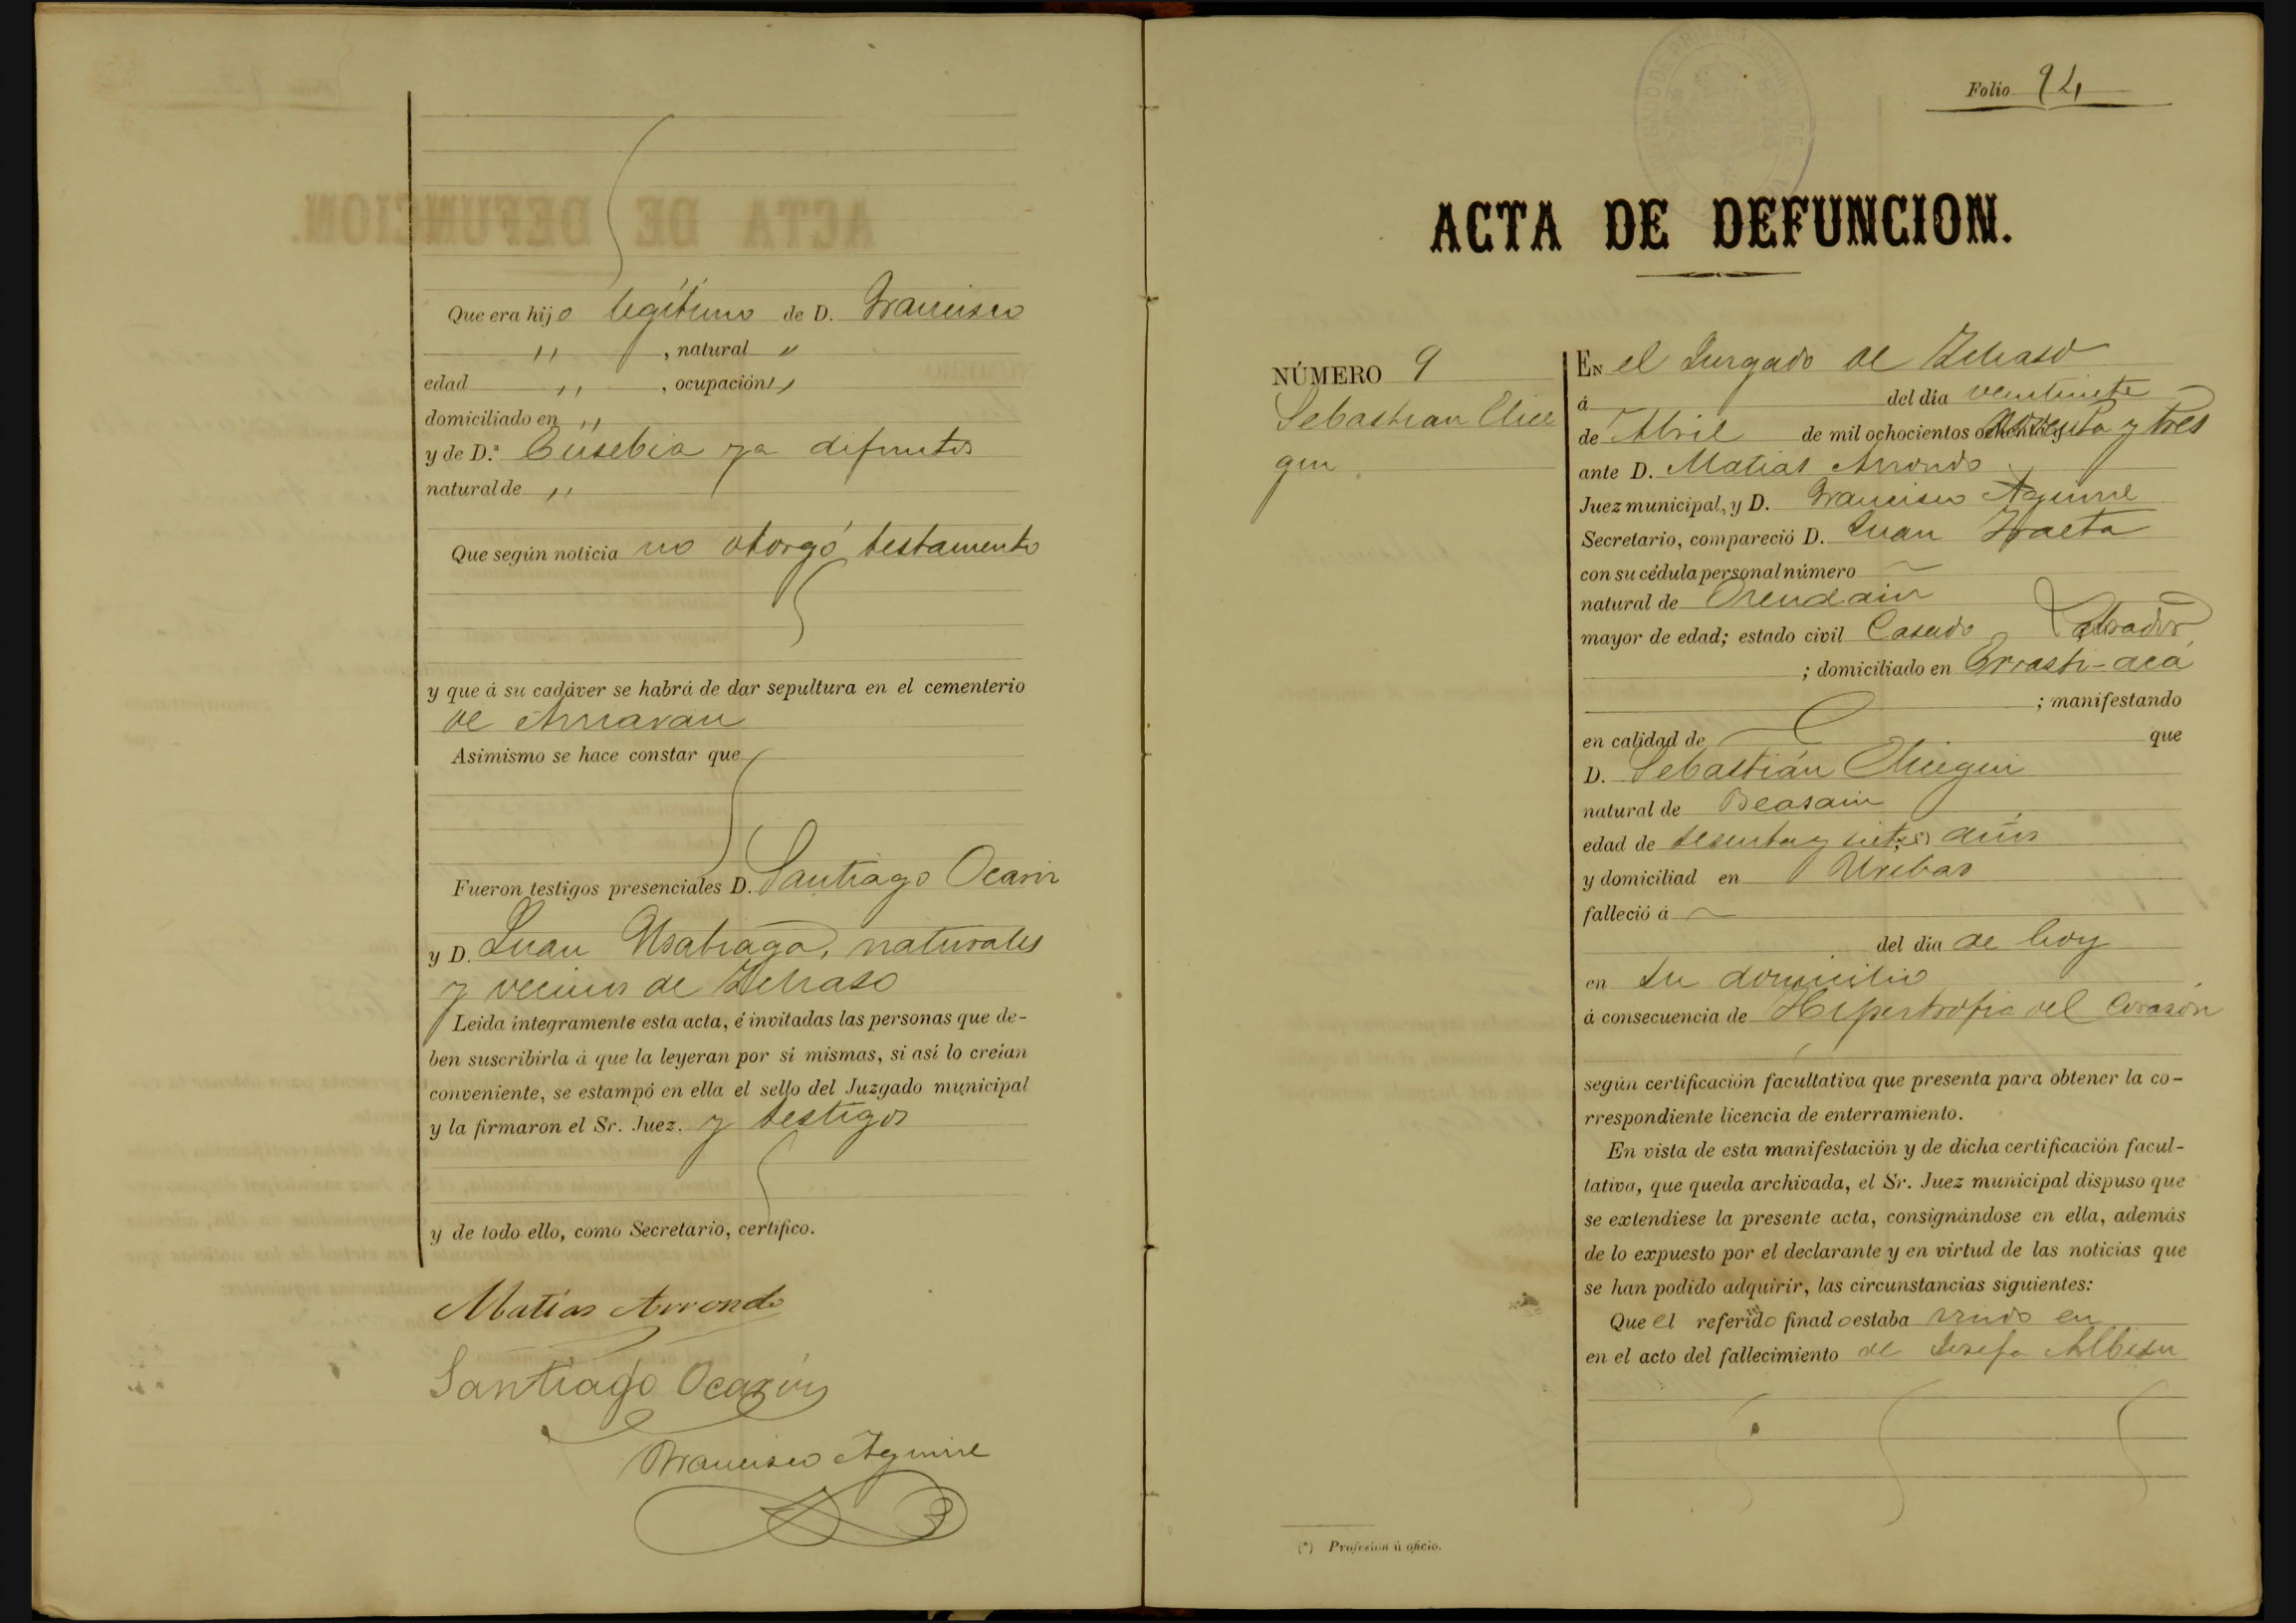 Que era hijo legítimo de D. Francisco
" , natural "
edad " , ocupación "
domiciliado en "
y de D.ª Eusebia ya difuntos
natural de "
Que según noticia no otorgó testamento
y que á su cadáver se habrá de dar sepultura en el cementerio
de Arriaran
Asimismo se hace constar que
Fueron testigos presenciales D. Santiago Ocariz
y D. Juan Usabiaga, naturales
y vecinos de Ichaso
Leida íntegramente esta acta, é invitadas las personas que de-
ben suscribirla á que la leyeran por sí mismas, si así lo creían
conveniente, se estampó en ella el sello del Juzgado municipal
y la firmaron el Sr. Juez. y testigos
y de todo ello, como Secretario, certifico.
Matías Arrondo
Santiago Ocariz
Francisco Aguirre
Folio 94
ACTA DE DEFUNCION.
NÚMERO 9
Sebastian Elice
gui
EN el Juzgado de Ichaso
á del día veintisiete
de Abril de mil ochocientos noventa y tres
ante D. Matias Arrondo
Juez municipal, y D. Francisco Aguirre
Secretario, compareció D. Juan Iraeta
con su cédula personal número
natural de Orendain
mayor de edad; estado civil Casado Labrador
; domiciliado en Errasti-acá
; manifestando
en calidad de que
D. Sebastián Elicegui
natural de Beasain
edad de sesenta y siete años
y domiciliad en Uribar
falleció á
del día de hoy
en su domicilio
á consecuencia de Hipertrofia del Corazón
según certificación facultativa que presenta para obtener la co-
rrespondiente licencia de enterramiento.
En vista de esta manifestación y de dicha certificación facul-
tativa, que queda archivada, el Sr. Juez municipal dispuso que
se extendiese la presente acta, consignándose en ella, además
de lo expuesto por el declarante y en virtud de las noticias que
se han podido adquirir, las circunstancias siguientes:
Que el referido finado estaba viudo en
en el acto del fallecimiento de Josefa Albisu
(*) Profesión ú oficio.